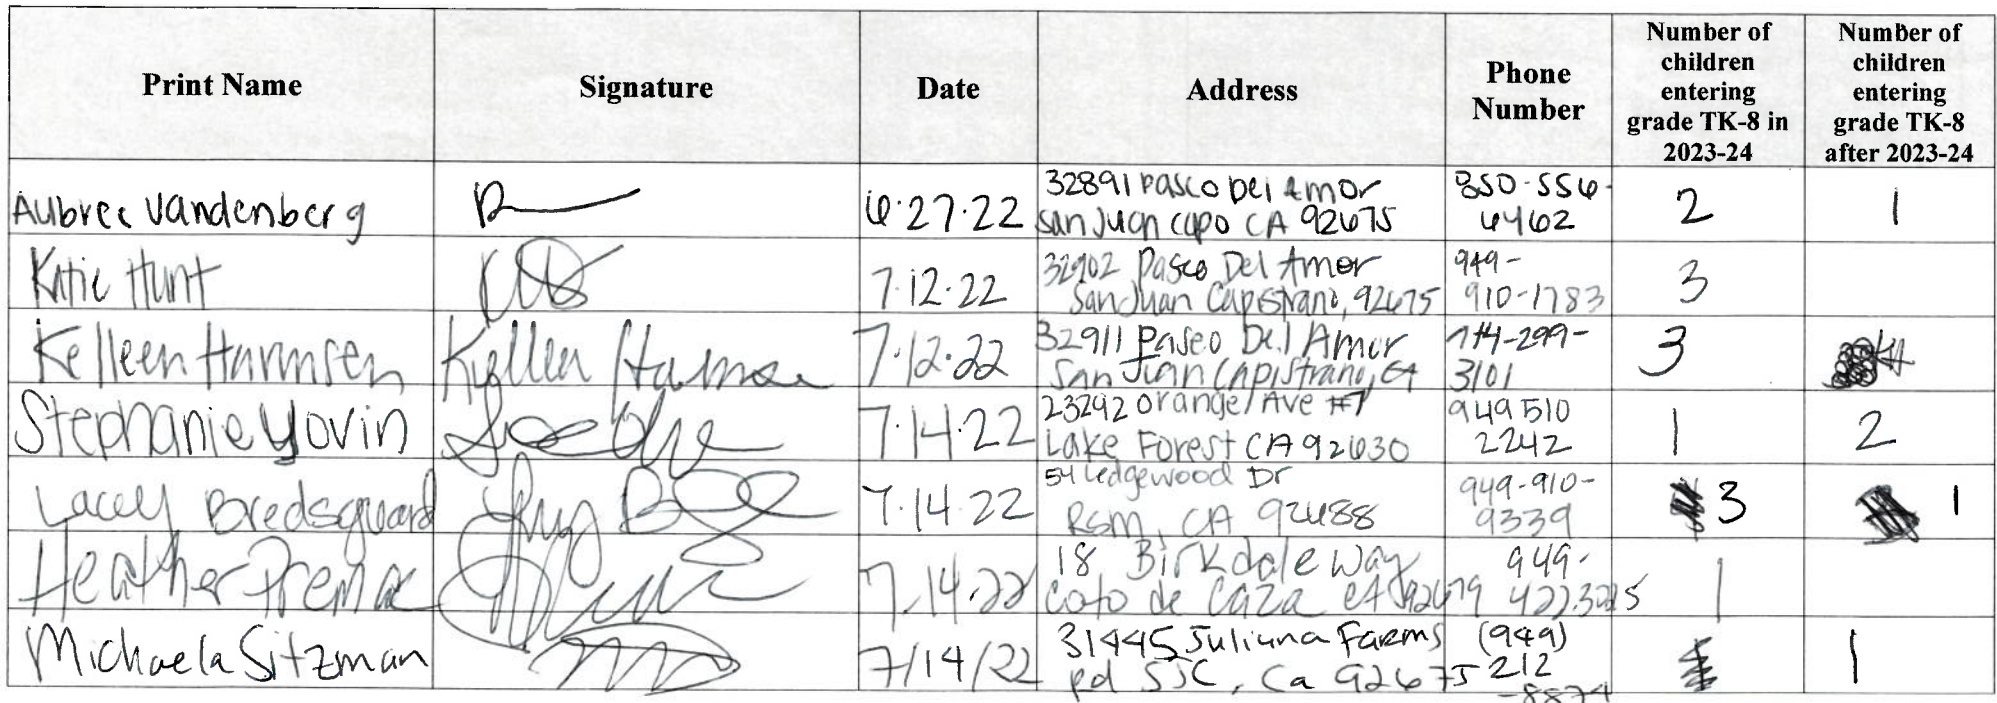 Print Name
Signature
Date
Address
Phone
Number
Number of
children
entering
grade TK-8 in
2023-24
Number of
children
entering
grade TK-8
after 2023-24
Aubree Vandenberg
6·27·22
32891 Paseo Del Amor
San Juan Capo CA 92675
850-556-
6462
2
1
Katie Hunt
7·12·22
32902 Paseo Del Amor
San Juan Capistrano, 92675
949-
910-1783
3
Kelleen Harmsen
Kelleen Harmsen
7·12·22
32911 Paseo Del Amor
San Juan Capistrano, CA
714-299-
3101
3
Stephanie Yovin
7·14·22
23292 Orange Ave #7
Lake Forest CA 92630
949 510
2242
1
2
Lacey Bredsguard
7·14·22
54 Ledgewood Dr
RSM, CA 92688
949-910-
9339
3
1
Heather
7.14.22
18 Birkdale Way
Coto de Caza CA 92679
949-
1
Michaela Sitzman
7/14/22
31445 Juliana Farms
Rd SJC, Ca 92675
(949)
212
-8874
1